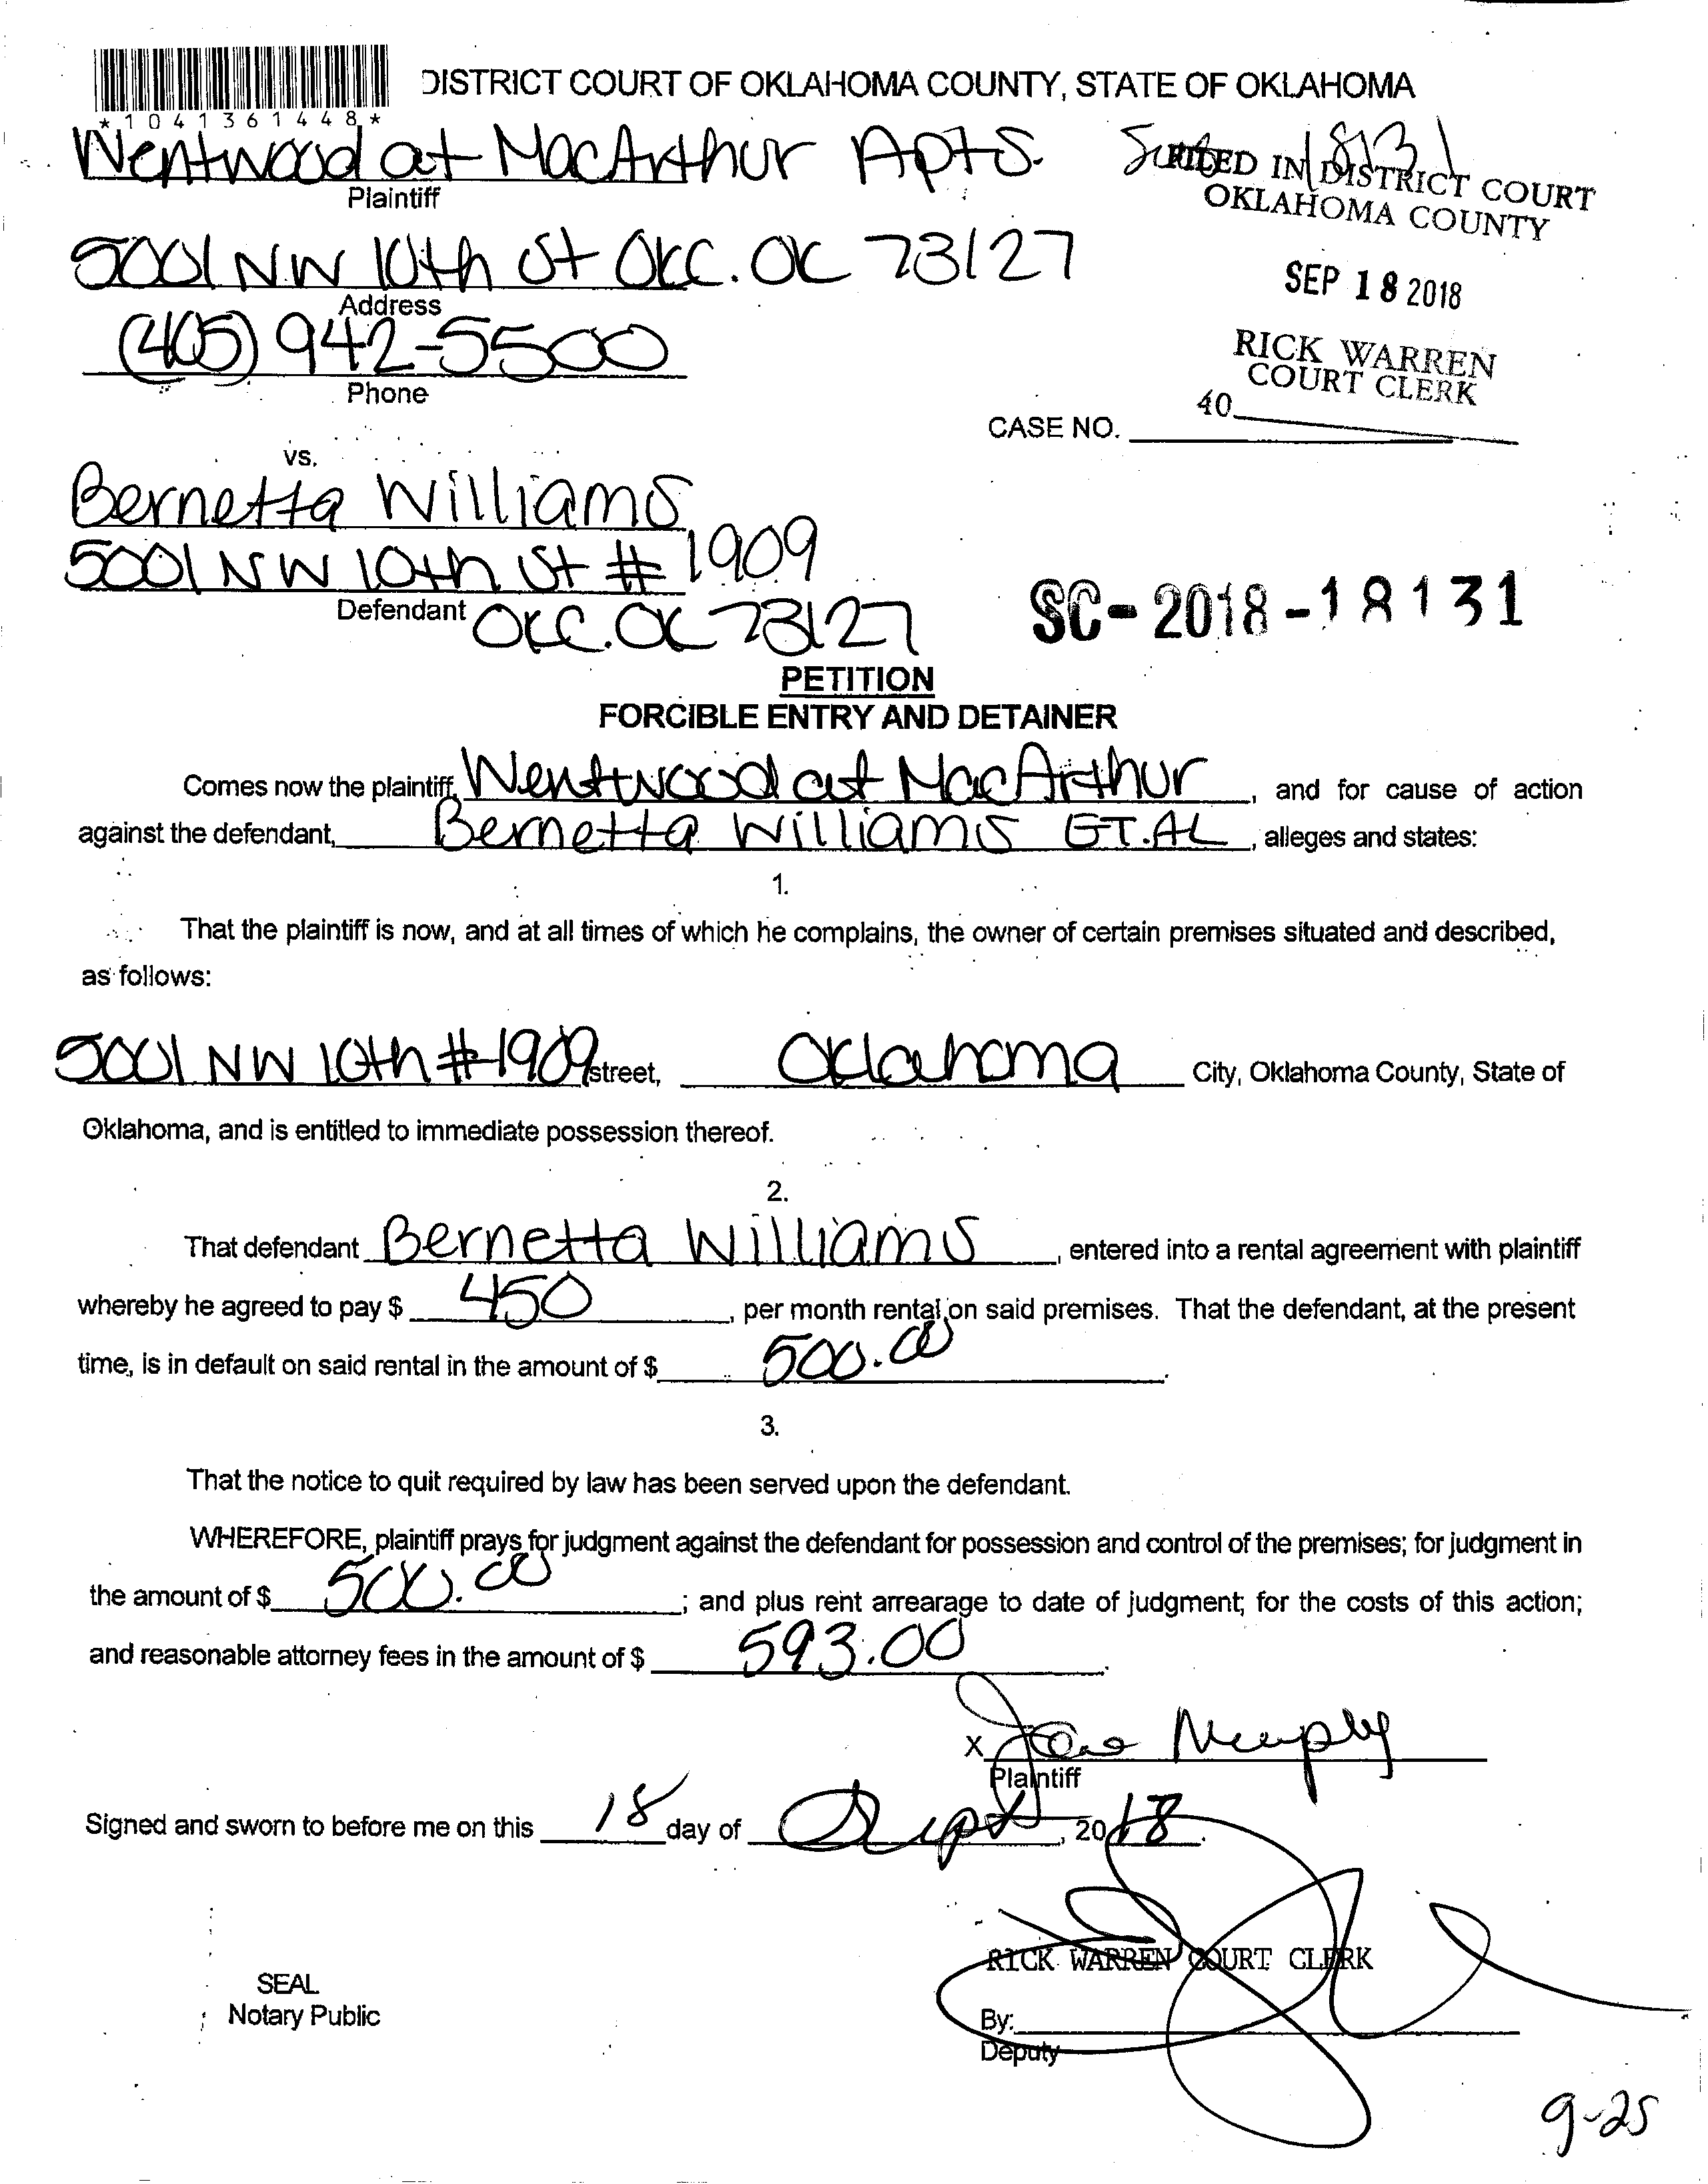 DISTRICT COURT OF OKLAHOMA COUNTY, STATE OF OKLAHOMA
*1041361448*
Wentwood at MacArthur Apts.
Plaintiff
18131
FILED IN DISTRICT COURT
OKLAHOMA COUNTY
5001 N.W 10th St OKC. OK 73127
Address
SEP 18 2018
(405) 942-5500
Phone
RICK WARREN
COURT CLERK
40
CASE NO.
vs.
Bernetta Williams
5001 NW 10th St # 1909
Defendant OKC. OK 73127
SC-2018-18131
PETITION
FORCIBLE ENTRY AND DETAINER
Comes now the plaintiff, Wentwood at MacArthur, and for cause of action
against the defendant, Bernetta Williams ET.AL, alleges and states:
1.
That the plaintiff is now, and at all times of which he complains, the owner of certain premises situated and described,
as follows:
5001 NW 10th #1909 street, Oklahoma City, Oklahoma County, State of
Oklahoma, and is entitled to immediate possession thereof.
2.
That defendant Bernetta Williams, entered into a rental agreement with plaintiff
whereby he agreed to pay $ 450, per month rental on said premises. That the defendant, at the present
time, is in default on said rental in the amount of $ 500.00.
3.
That the notice to quit required by law has been served upon the defendant.
WHEREFORE, plaintiff prays for judgment against the defendant for possession and control of the premises; for judgment in
the amount of $ 500.00; and plus rent arrearage to date of judgment; for the costs of this action;
and reasonable attorney fees in the amount of $ 593.00.
X Murphy
Plaintiff
Signed and sworn to before me on this 18 day of Sept, 2018.
RICK WARREN COURT CLERK
SEAL
Notary Public
By:
Deputy
9-25